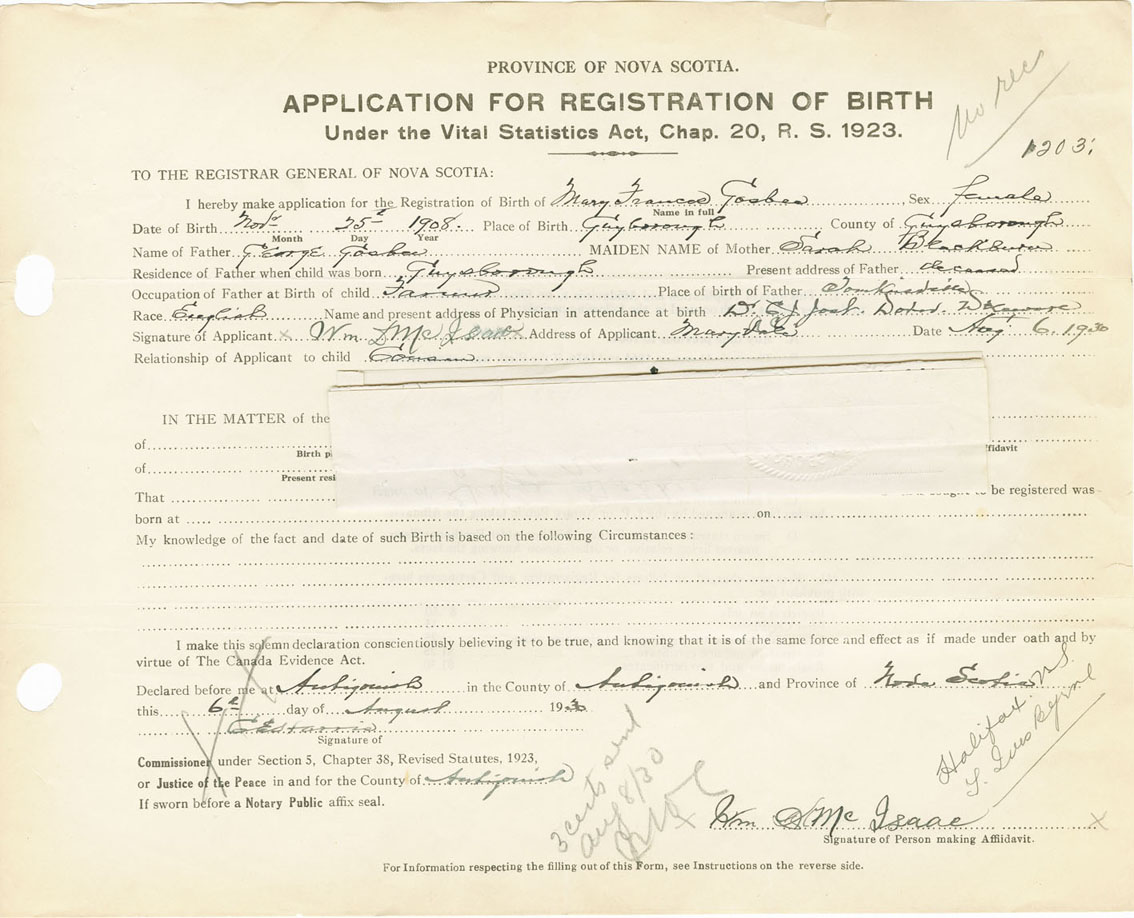 PROVINCE OF NOVA SCOTIA.
No rec
APPLICATION FOR REGISTRATION OF BIRTH
Under the Vital Statistics Act, Chap. 20, R. S. 1923.
1203
TO THE REGISTRAR GENERAL OF NOVA SCOTIA:
I hereby make application for the Registration of Birth of Mary Frances Gosbee Sex female
Name in full
Date of Birth Nov. 25th 1908. Place of Birth Guysborough County of Guysborough
Month Day Year
Name of Father George Gosbee MAIDEN NAME of Mother Sarah Blackburn
Residence of Father when child was born Guysborough Present address of Father deceased
Occupation of Father at Birth of child Farmer Place of birth of Father Tomkinsville
Race English Name and present address of Physician in attendance at birth Dr. C. J. Jost. Dover. Delaware
Signature of Applicant x Wm. D McIsaac Address of Applicant Marydale Date Aug. 6. 1930
Relationship of Applicant to child Cousin
IN THE MATTER of the
of
Birth p
ffidavit
of
Present resi
That be registered was
born at on
My knowledge of the fact and date of such Birth is based on the following Circumstances:
I make this solemn declaration conscientiously believing it to be true, and knowing that it is of the same force and effect as if made under oath and by
virtue of The Canada Evidence Act.
Declared before me at Antigonish in the County of Antigonish and Province of Nova Scotia
this 6th day of August 1930
Signature of
Commissioner under Section 5, Chapter 38, Revised Statutes, 1923,
or Justice of the Peace in and for the County of Antigonish
If sworn before a Notary Public affix seal.
3 certs sent
Aug 8/30
Halifax N.S.
x Wm D McIsaac x
Signature of Person making Affidavit.
For Information respecting the filling out of this Form, see Instructions on the reverse side.